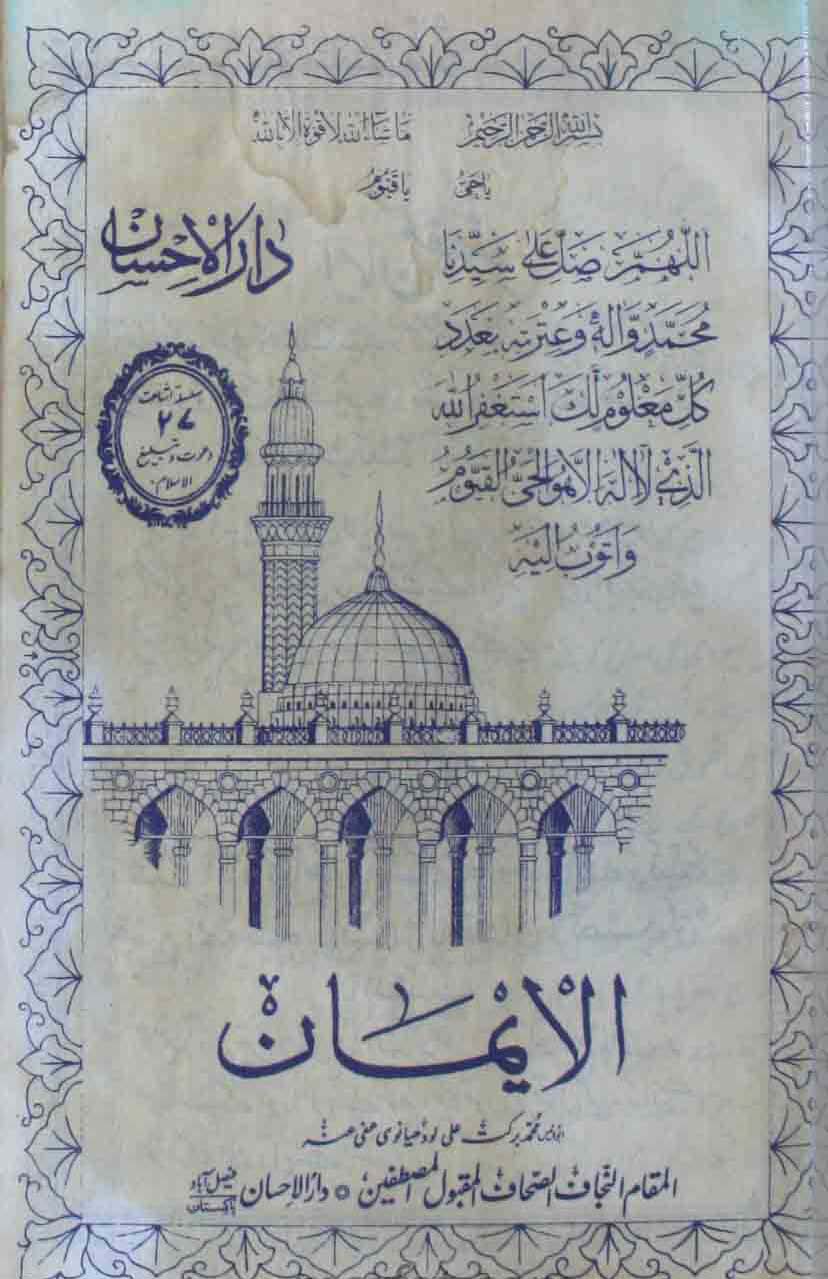 بسم الله الرحمن الرحيم ما شاء الله لا قوة الا بالله
یا حیُّ یا قیوم
دارالاحسان
اَللّٰهُمَّ صَلِّ عَلٰی سَیِّدِنَا
مُحَمَّدٍ وَّاٰلِهٖ وَعِتْرَتِهٖ بِعَدَدِ
کُلِّ مَعْلُوْمٍ لَّكَ اَسْتَغْفِرُ اللّٰهَ
الَّذِیْ لَا اِلٰهَ اِلَّا هُوَ الْحَیُّ الْقَیُّوْمُ
وَاَتُوْبُ اِلَیْهِ
سلسلہ اشاعت
۲۷
دعوت و تبلیغ
الاسلام
الْاِیْمَان
ابوانیس محمد برکت علی لودھیانوی عفی عنہ
المقام النجاف الصحاف المقبول المصطفین ○ دارالاحسان فیصل آباد
پاکستان